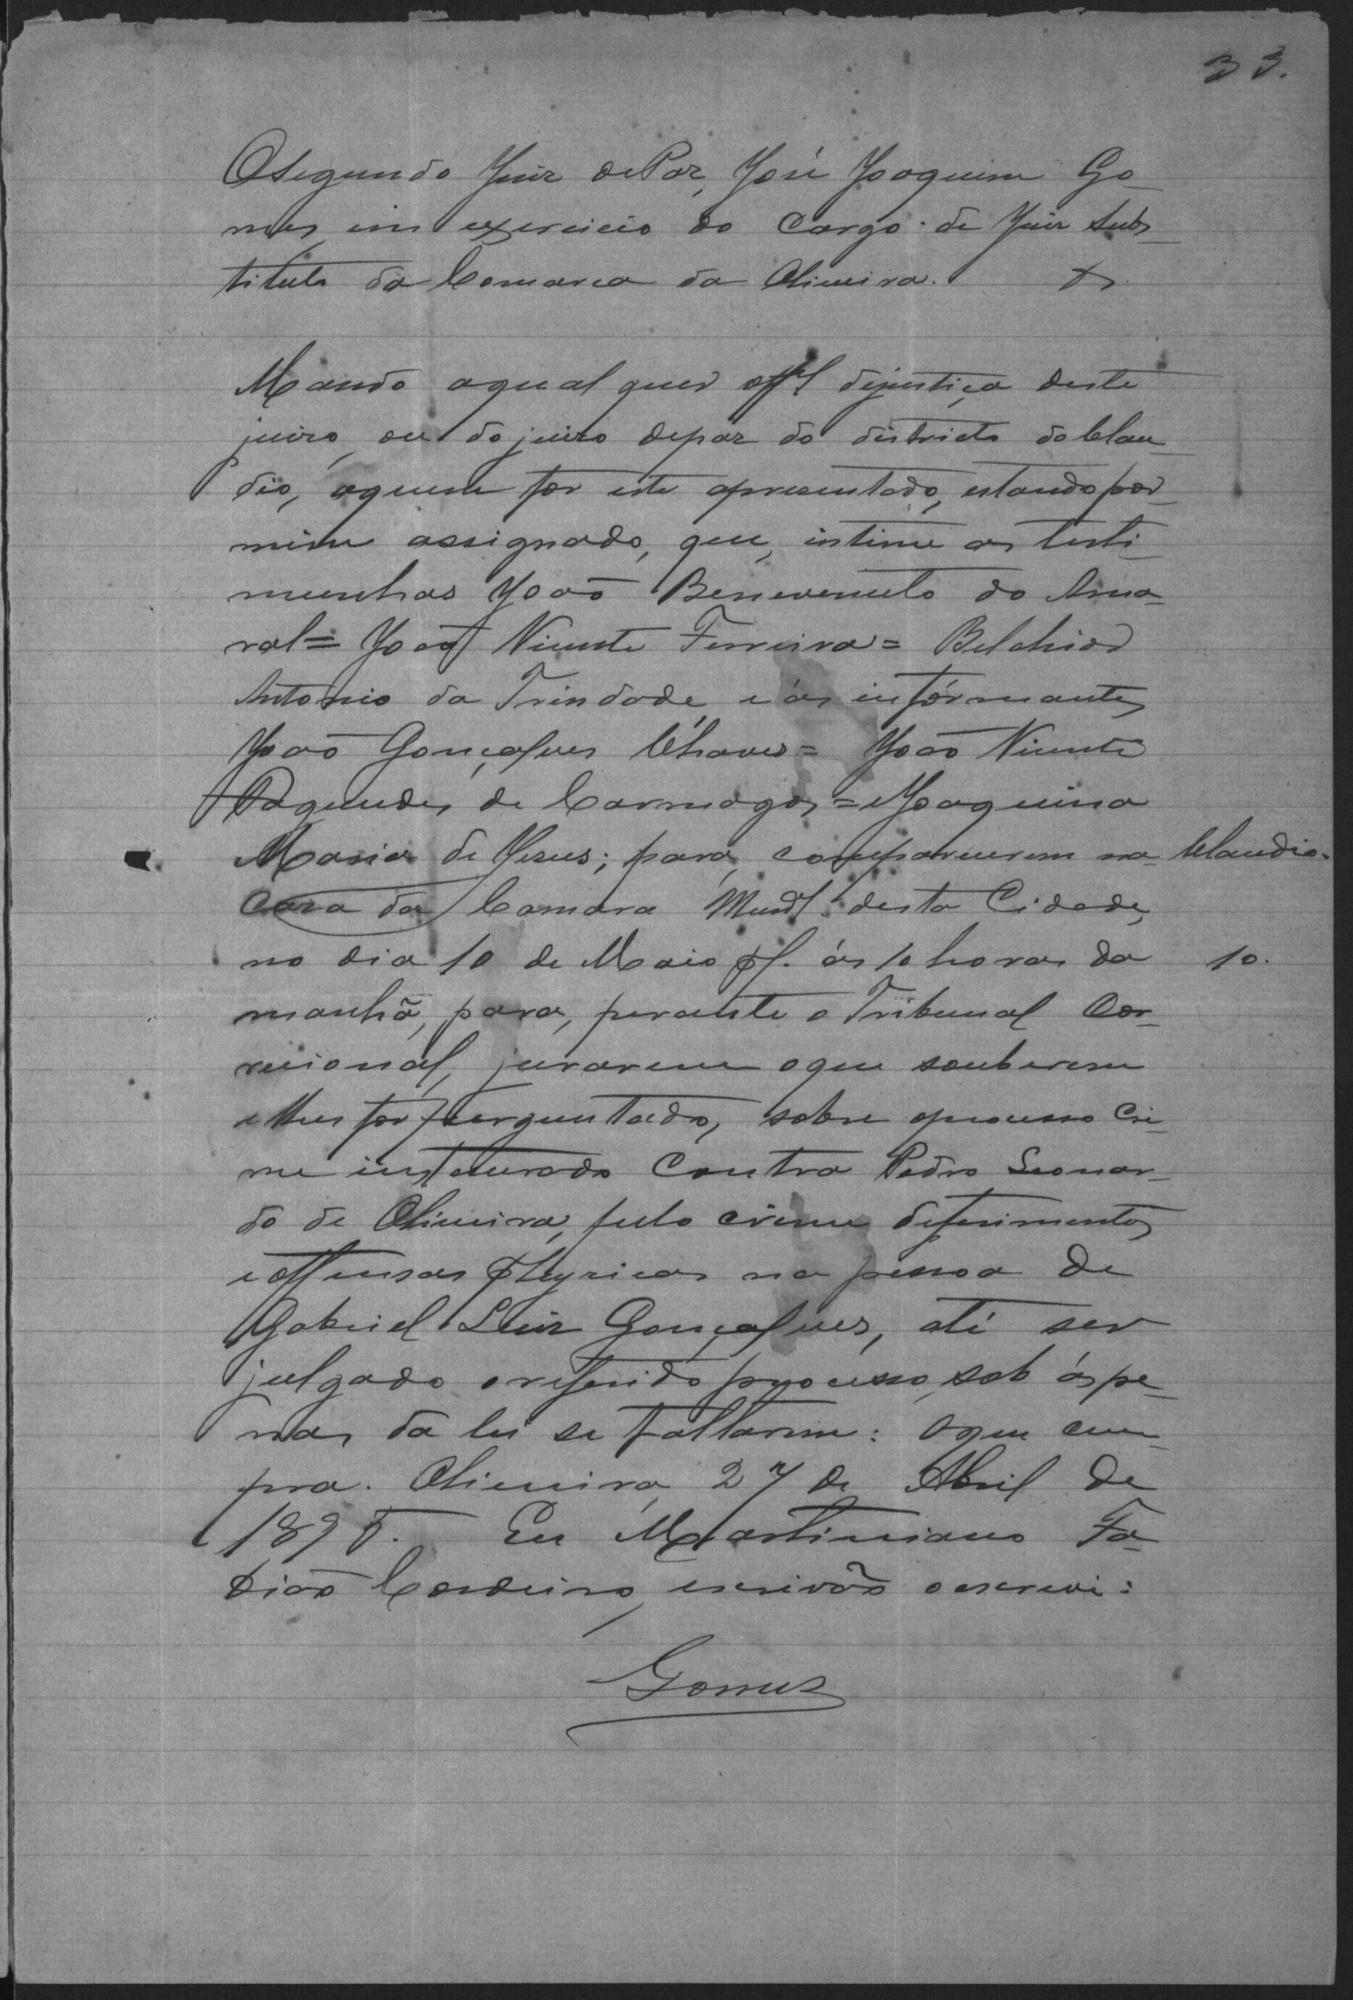 33.
O segundo Juiz de Paz, José Joaquim Go-
mes, em exercicio do cargo de Juiz Subs-
tituto da Comarca da Oliveira. &
Mando a qual quer offl. dejustiça deste
juizo, ou do juizo depaz do districto do Clau-
dio, aquem for este apresentado, estando por
mim assignado, que, intime as teste-
munhas João Benevenuto do Ama-
ral = João Vicente Ferreira = Belchior
Antonio da Trindade e ás informantes
João Gonçalves Chaves = João Vicente
Fagundes de Camargos = Joaquina
Maria de Jesus; para, comparecerem na
Claudio.
Casa da Camara Munal. desta Cidade,
no dia 10 de Maio pf. ás 10 horas da
10.
manhã, para, perante o Tribunal Cor-
recional, jurarem oque souberem
e lhes for perguntado, sobre oprocesso Cri-
me instaurado Contra Pedro Leonar-
do de Oliveira, pelo crime deferimentos
e offensas physicas na pessoa de
Gabriel Luiz Gonçalves, até ser
julgado o referido processo, sob ás pe-
nas da lei se faltarem: O que cum-
pra. Oliveira, 27 de Abril de
189 . Eu Martiniano Fa-
bião Cordeiro, escrivão o escrevi:
Gomes